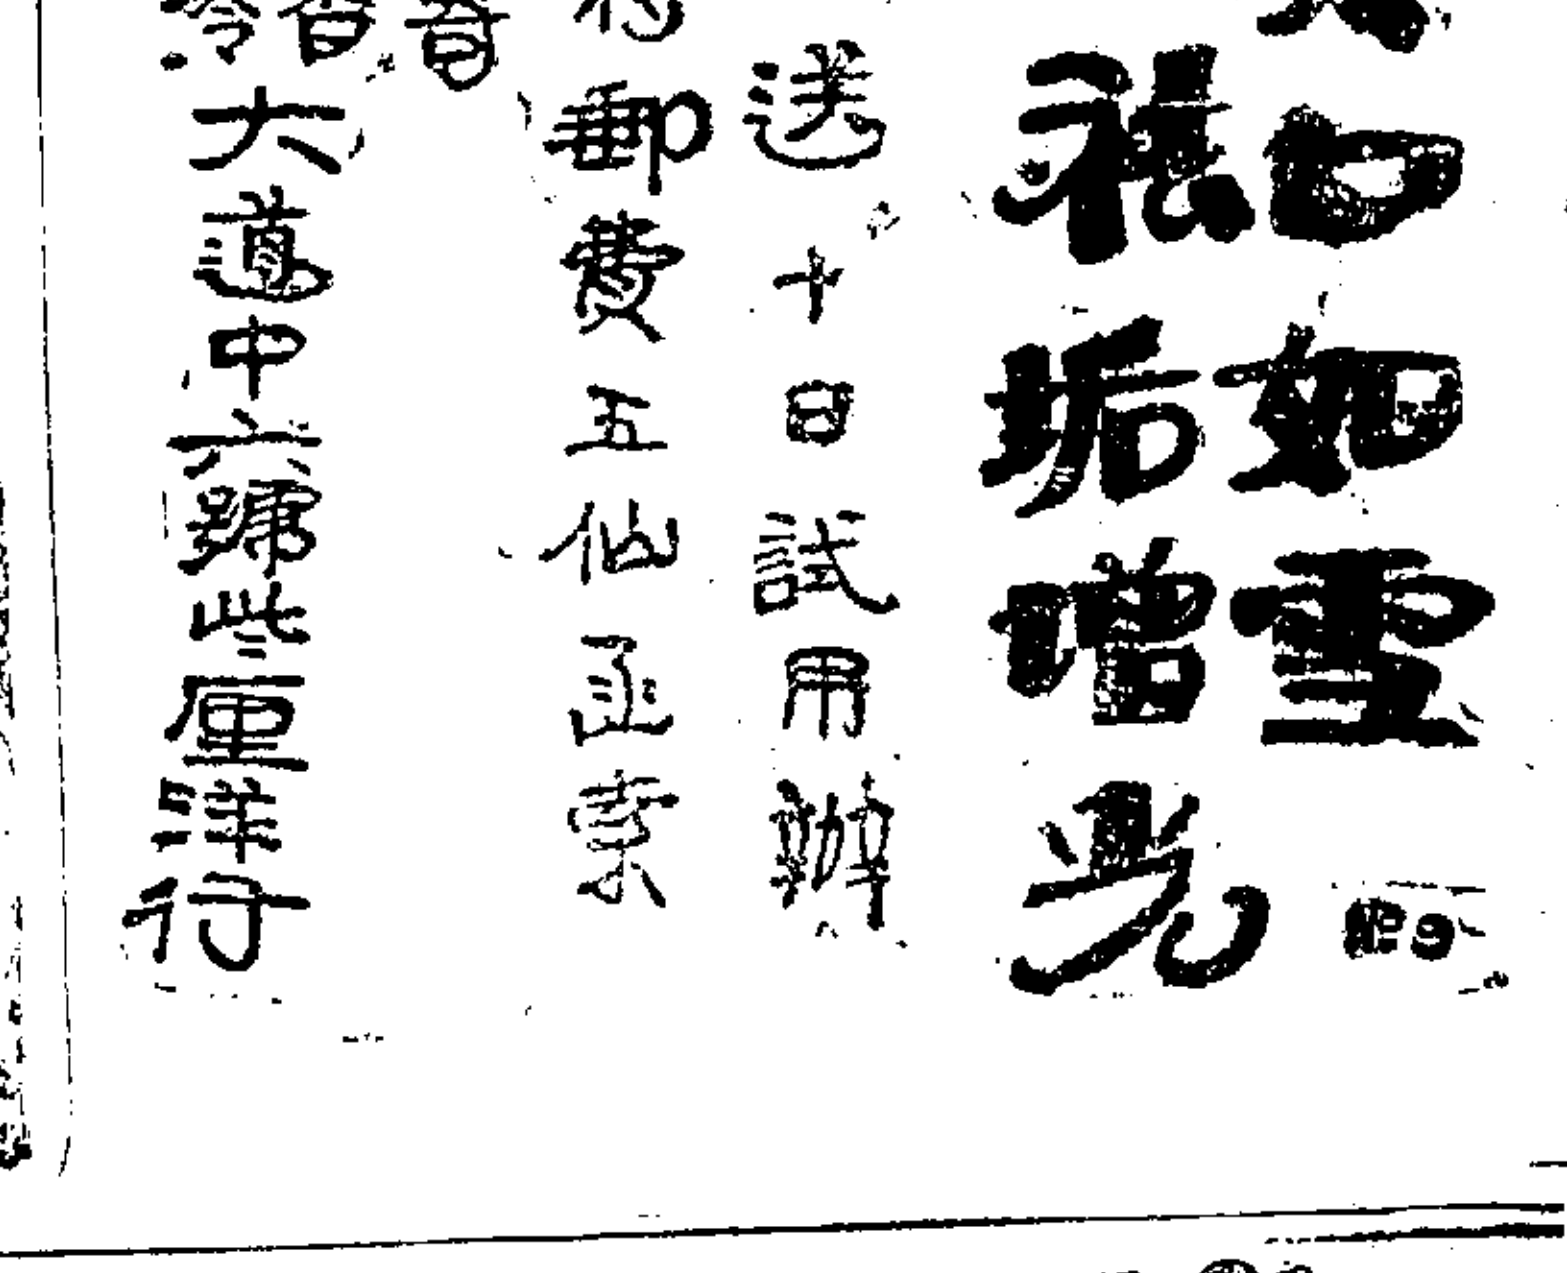 白如雪
祛垢增光
送十日試用辦
郵費五仙函索
大道中六號些厘洋行